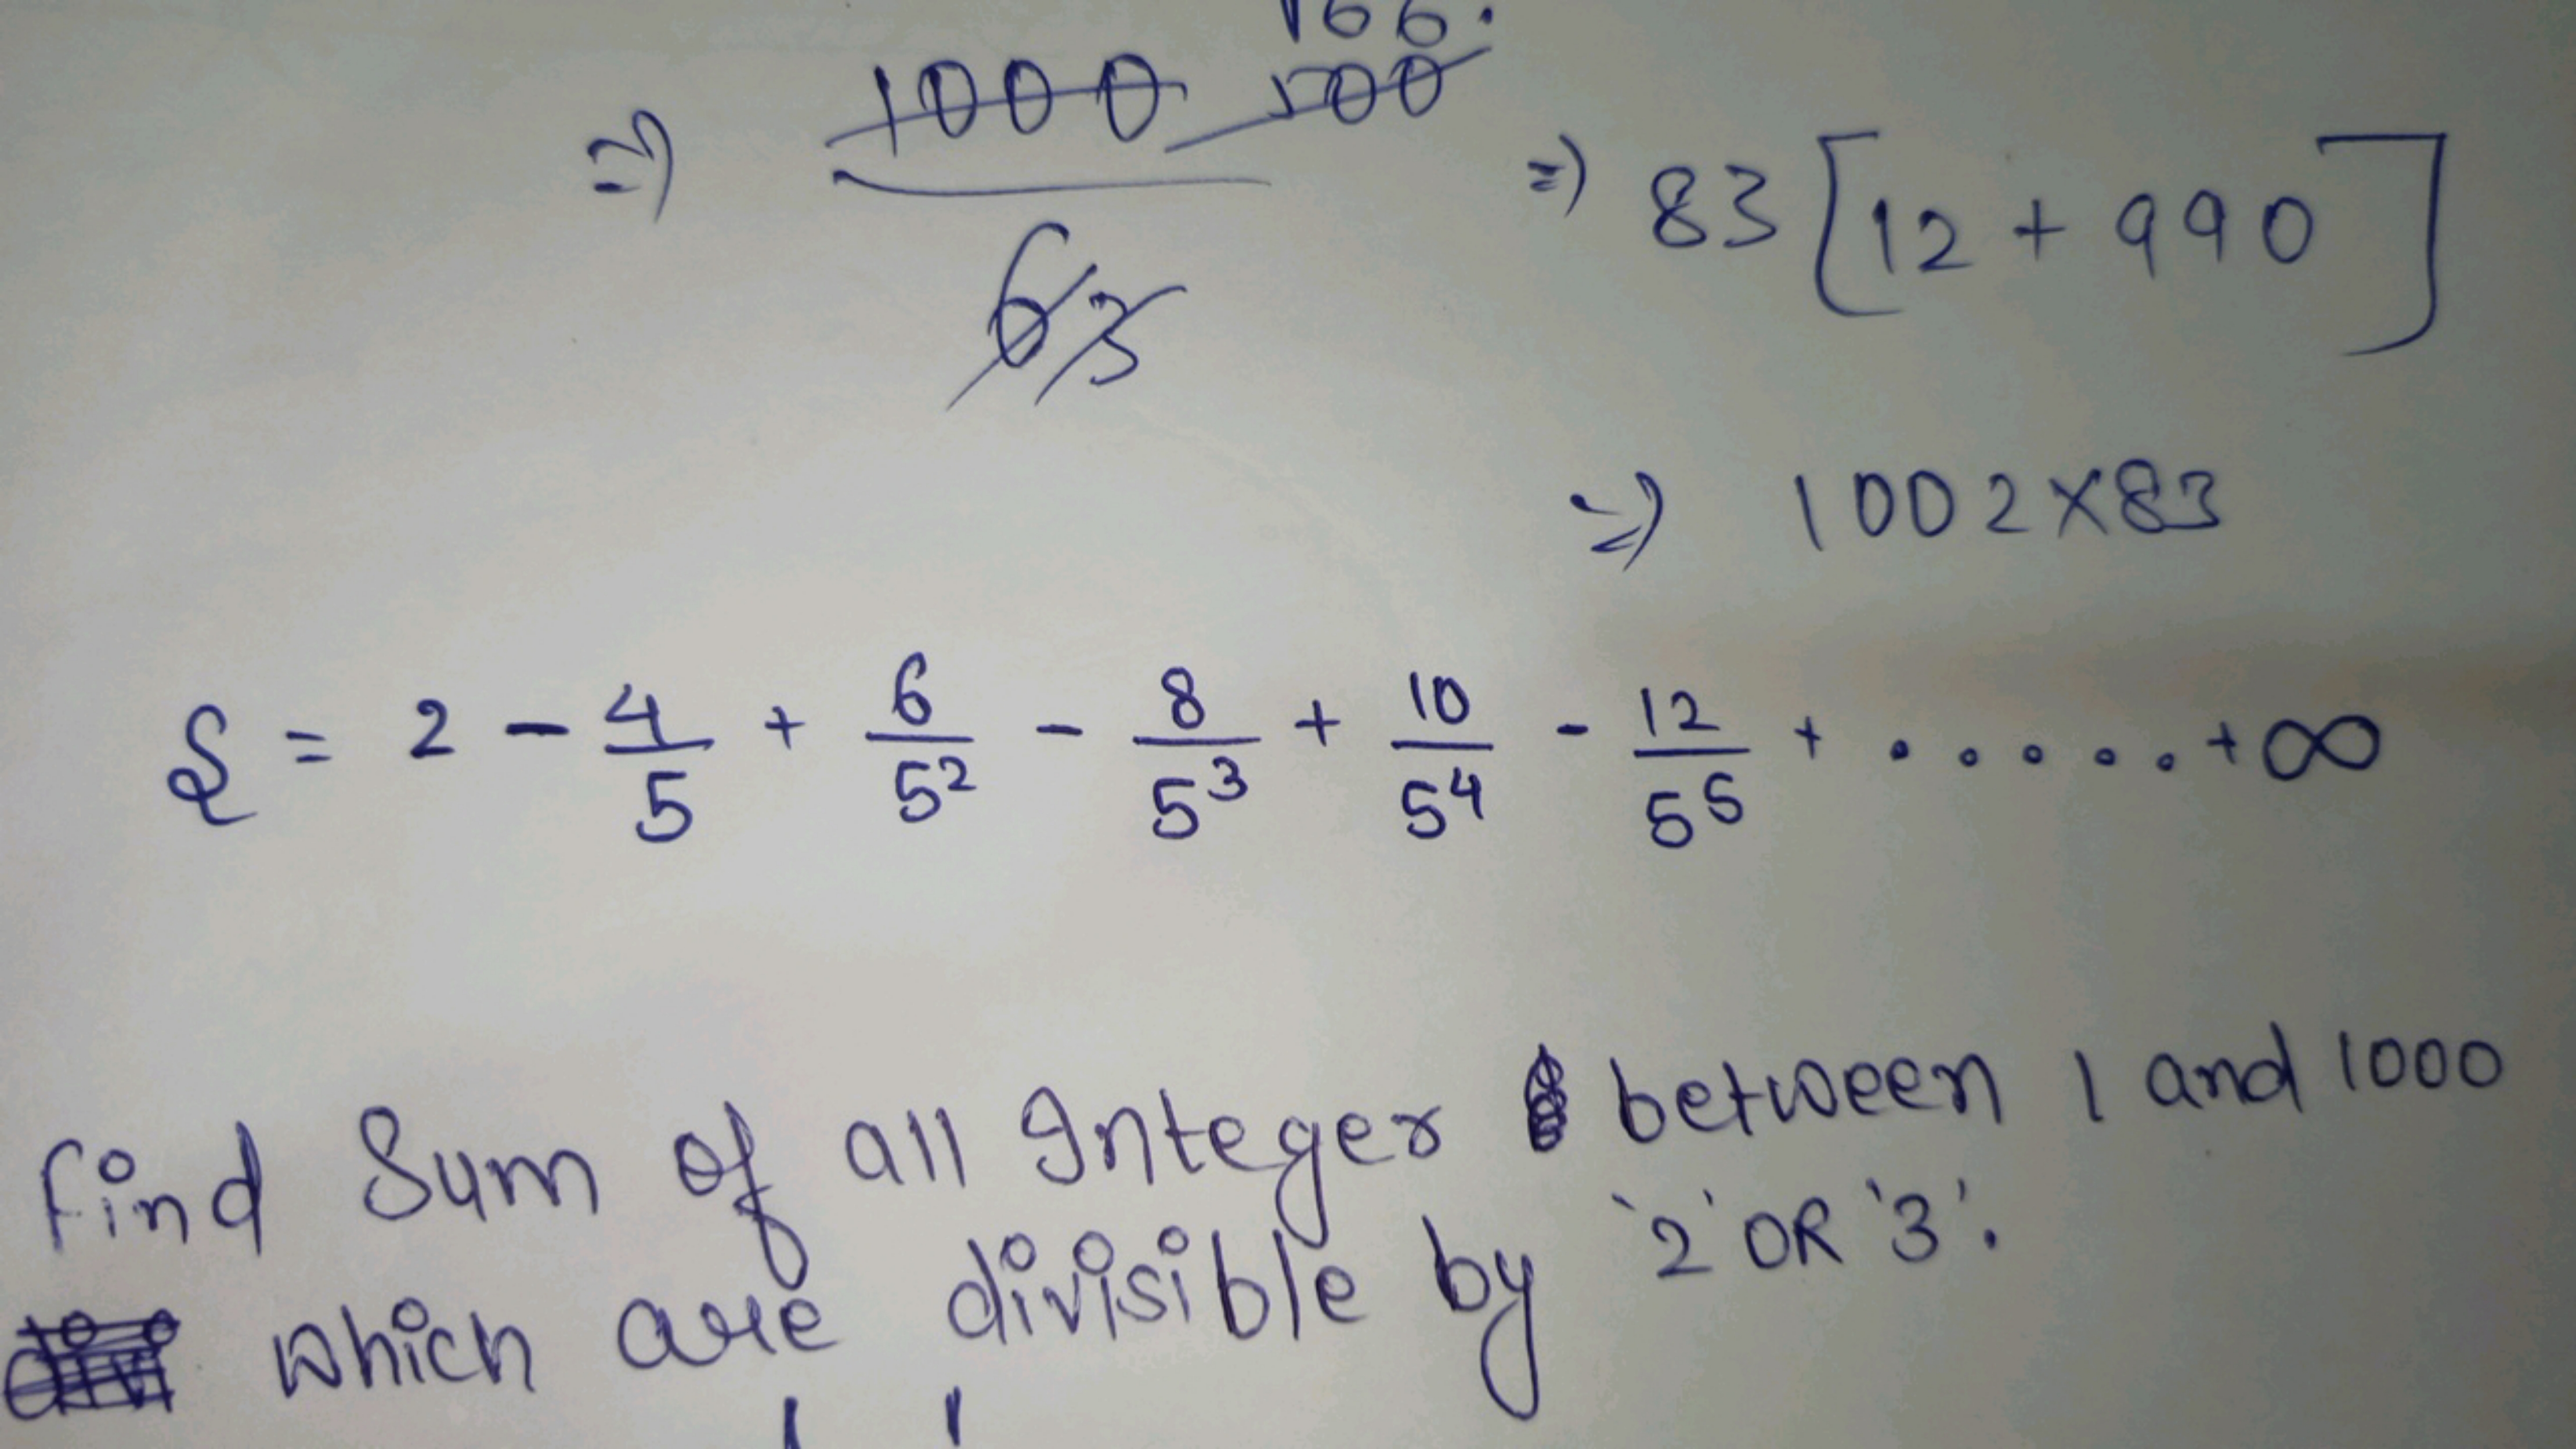 166.
=) 1000 500 / 6 3 => 83[12 + 990]
=) 1002×83
S = 2 - 4/5 + 6/5² - 8/5³ + 10/5⁴ - 12/5⁵ + ..... + ∞
Find Sum of all Integer between 1 and 1000
which are divisible by '2' OR '3'.